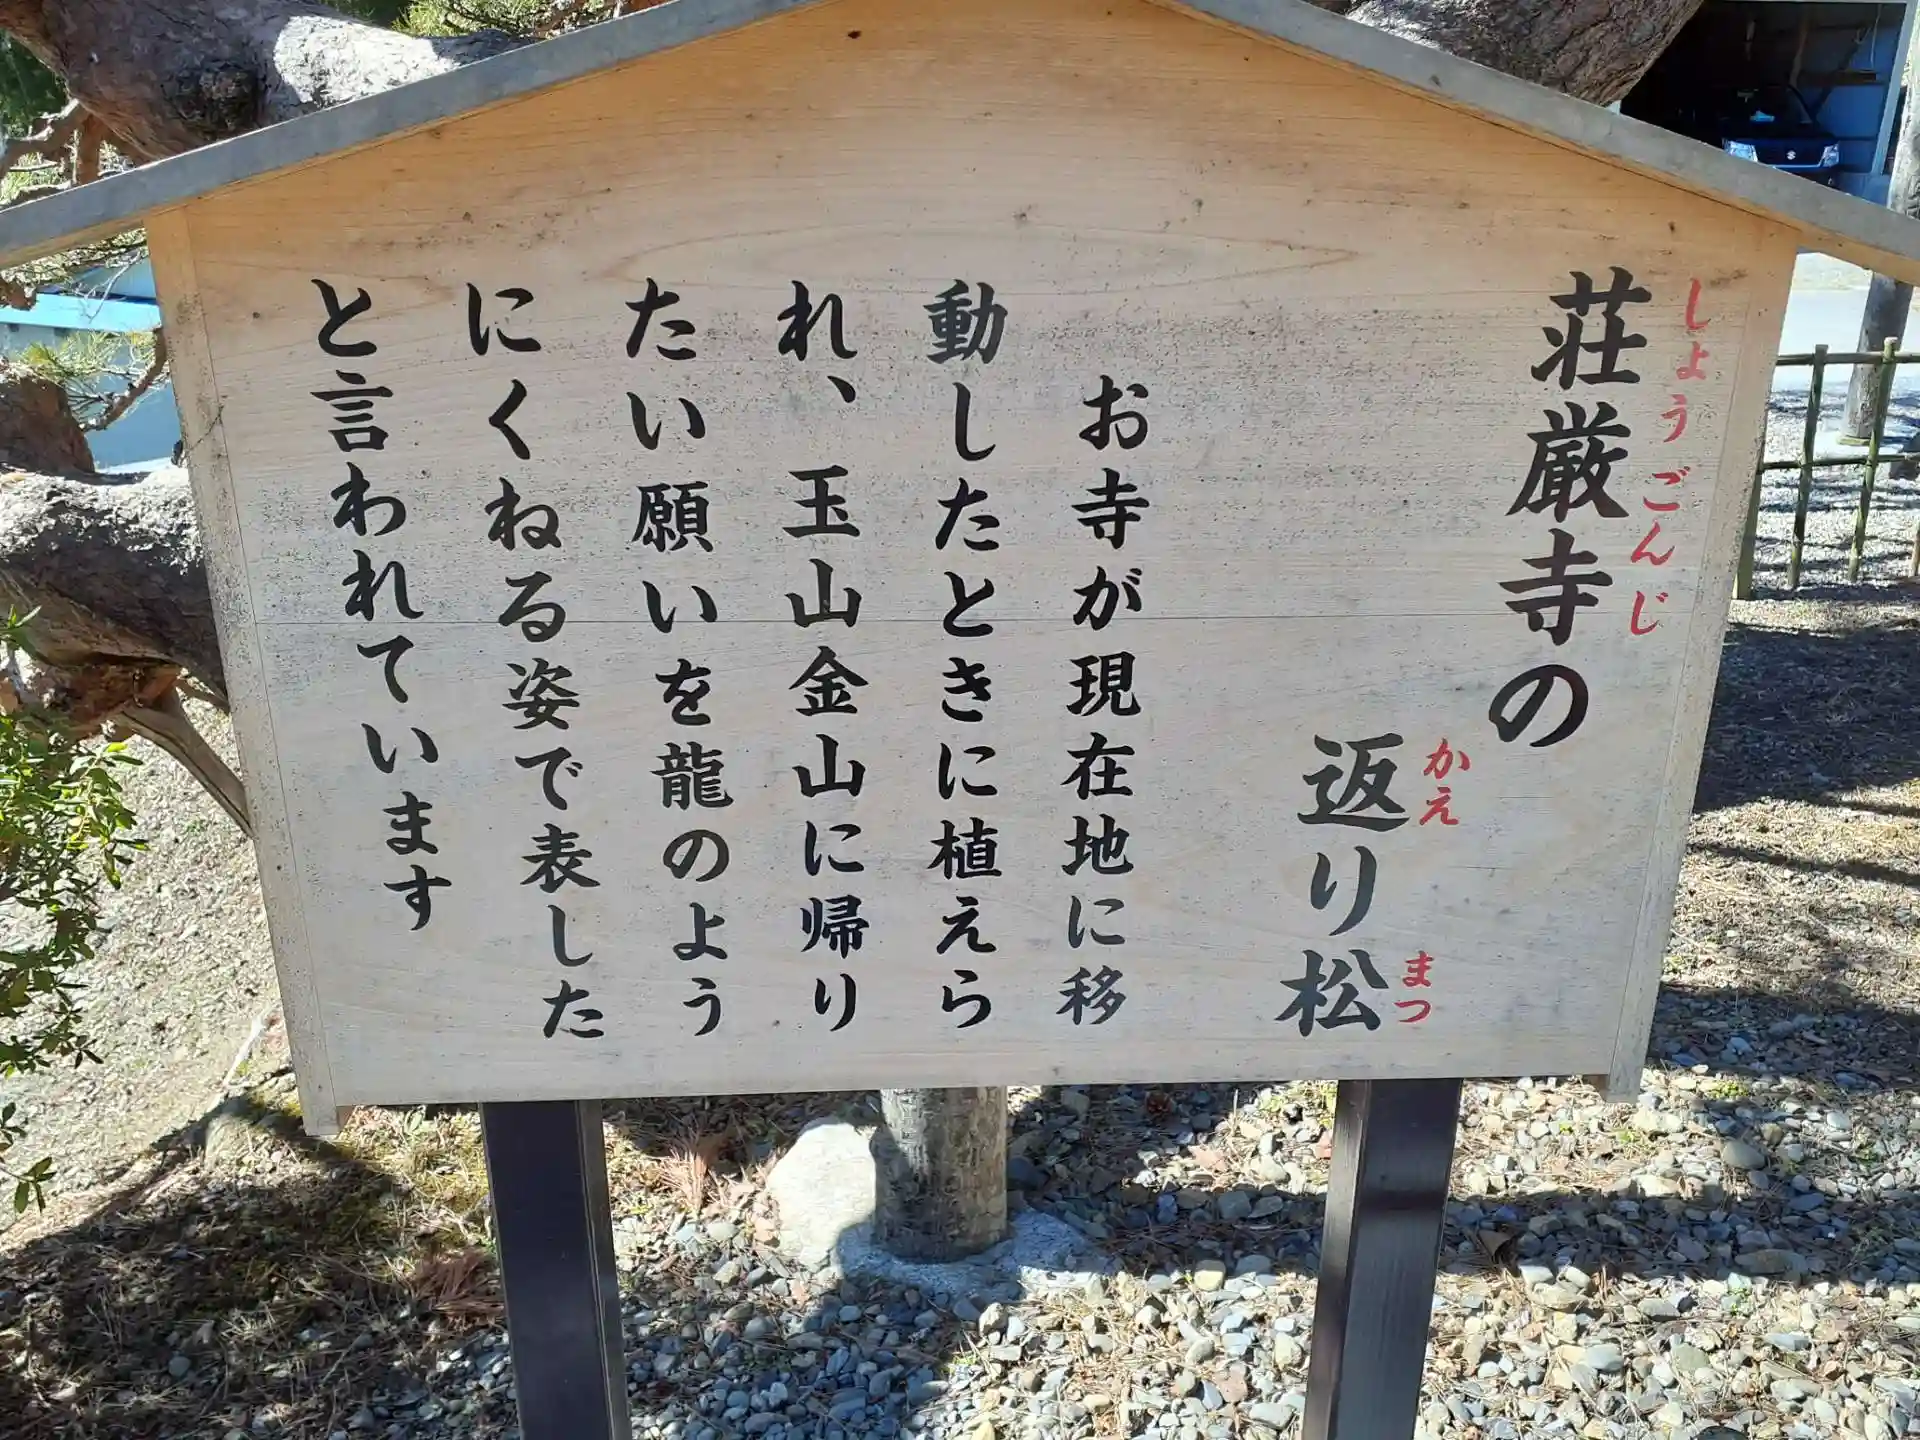 荘厳寺の
しょうごんじ
返り松
かえ まつ
お寺が現在地に移
動したときに植えら
れ、玉山金山に帰り
たい願いを龍のよう
にくねる姿で表した
と言われています